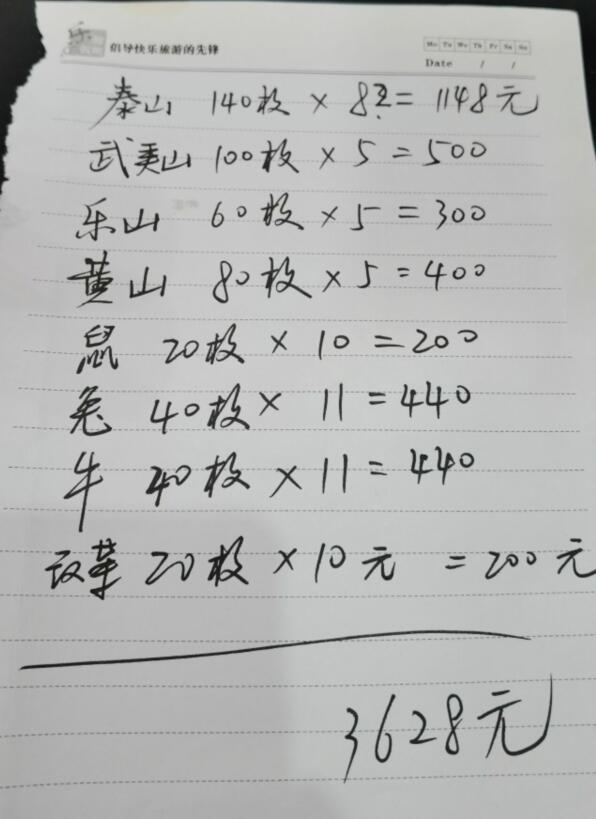 乐
倡导快乐旅游的先锋
Mo Tu We Th Fr Sa Su
Date / /
泰山 140枚 × 8.2 = 1148元
武夷山 100枚 × 5 = 500
乐山 60枚 × 5 = 300
黄山 80枚 × 5 = 400
鼠 20枚 × 10 = 200
兔 40枚 × 11 = 440
牛 40枚 × 11 = 440
改革 20枚 × 10元 = 200元
3628元